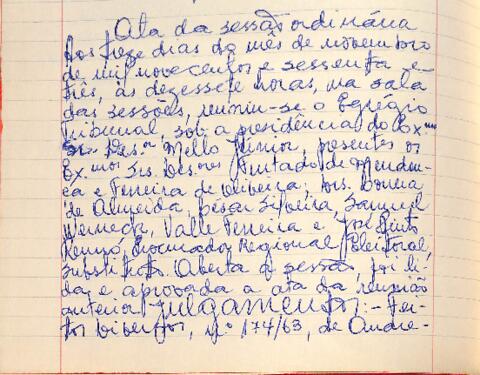 Ata da sessão ordinária
Aos treze dias do mês de novembro
de mil novecentos e sessenta e
três, às dezessete horas, na sala
das sessões, reuniu-se o Egrégio
Tribunal, sob a presidência do Exmo
Sr. Des.or Mello Júnior, presentes os
Ex.mos Srs. Des.ores Furtado de Mendon-
ça e Ferreira de Oliveira; Drs. Correa
de Almeida, César Silveira, Samuel
Werneck, Valle Ferreira e José Pinto
Renó, Procurador Regional Eleitoral,
Substituto. Aberta a sessão, foi li-
da e aprovada a ata da reunião
anterior. Julgamentos: - Fei-
tos diversos, n.º 174/63, de Andre-